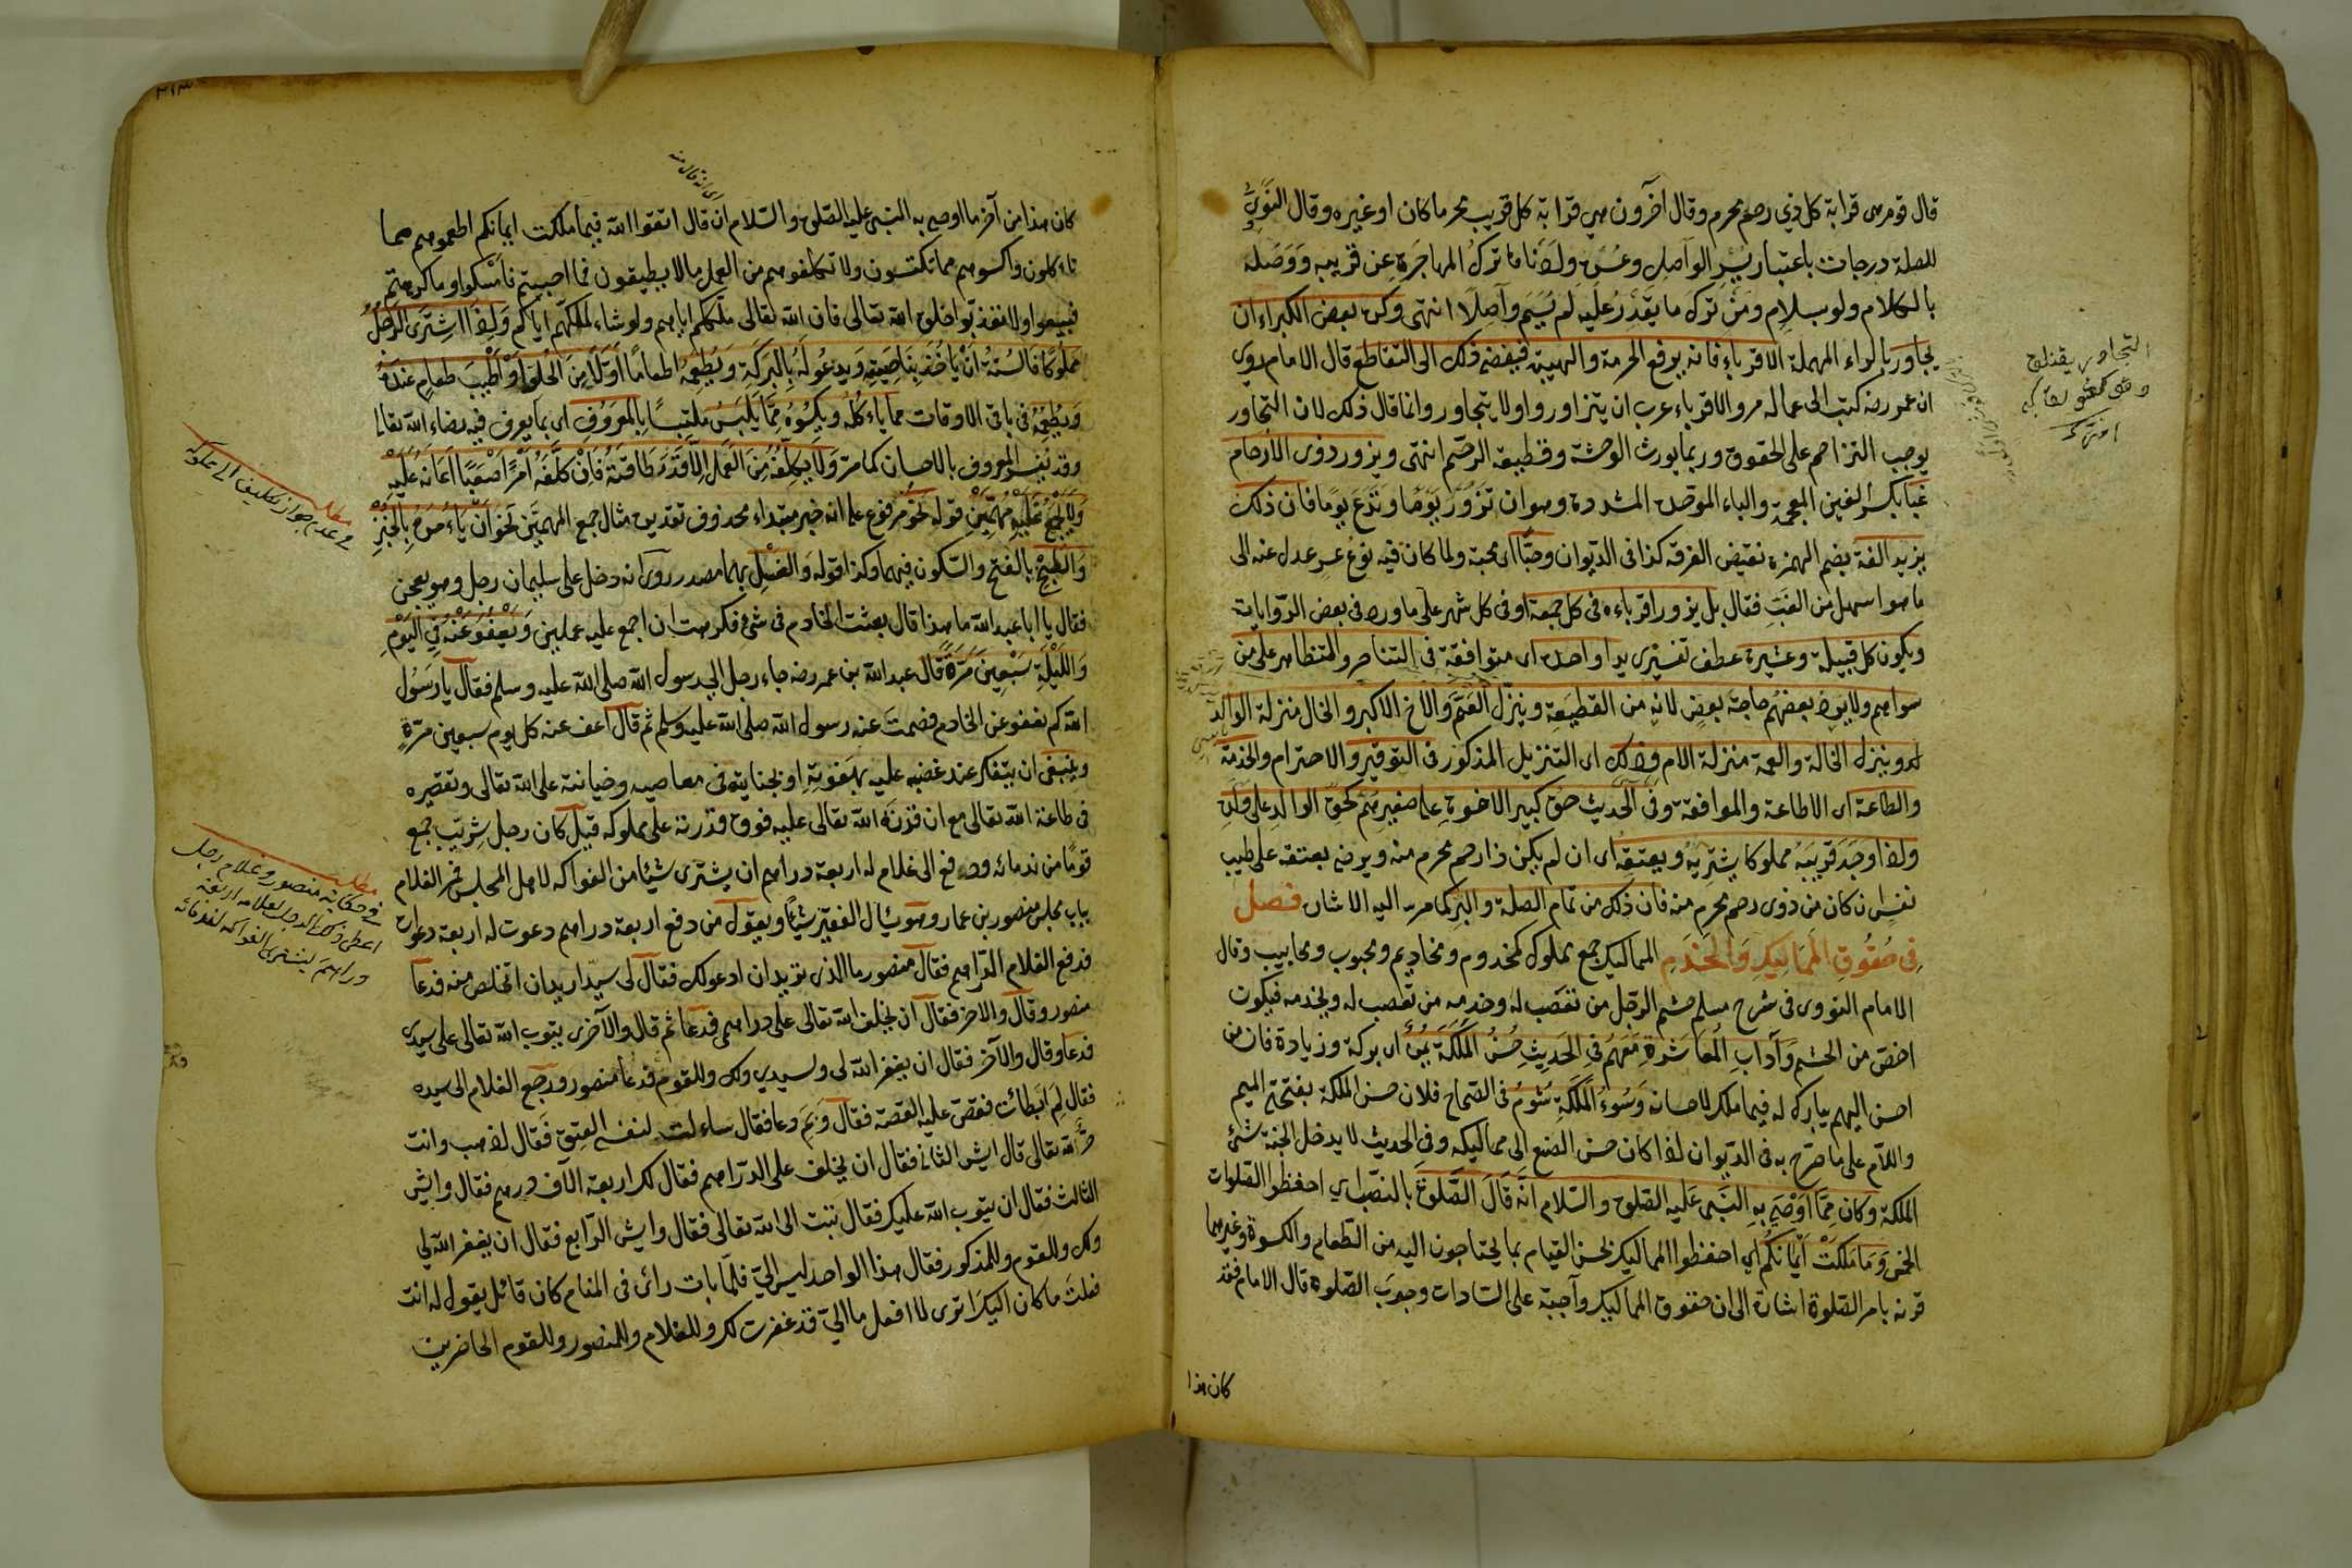 قال قوم هى قرابة كل ذي رحم محرم وقال آخرون هي قرابة كل قريب محرما كان او غيره وقال النووي
للصلة درجات باعتبار يسر الواصل وعسره ولادناها ترك المهاجرة عن قريبه ووصله
بالكلام ولو بسلام ومن ترك ما يقدر عليه لم يسم واصلا انتهى وكره بعض الكبراء ان
يجاور بالراء المهملة الاقرباء فانه يرفع الحرمة والهيبة فيفضى ذلك الى التقاطع قال الامام روى
ان عمر رضه كتب الى عماله مروا الاقرباء ان يتزاوروا ولا يتجاوروا وانما قال ذلك لان التجاور
يوجب التزاحم على الحقوق وربما يورث الوحشة وقطيعة الرحم انتهى ويزور ذوى الارحام
غبا بكسر الغين المعجمة والباء الموحدة المشددة وهو ان تزور يوما وتدع يوما فان ذلك
يزيد الفة بضم الهمزة نقيض الفرقة كذا فى الديوان وحبا اى محبة ولما كان فيه نوع عسر عدل عنه الى
ما هو اسهل من الغب فقال بل يزور اقرباءه فى كل جمعة او فى كل شهر على ما ورد فى بعض الروايات
ويكون كل قبيلة وعشيرة عطف تفسيرى يدا واحدة اى متوافقة فى التناصر والتظاهر على من
سواهم ولا يرد بعضهم حاجة بعض لانه من القطيعة وينزل العم والاخ الاكبر والخال منزلة الوالد
له وينزل الخالة والعمة منزلة الام وذلك اى التنزيل المذكور فى التوقير والاحترام والخدمة
والطاعة اى الاطاعة والموافقة وفى الحديث حق كبير الاخوة على صغيرهم كحق الوالد على ولده
واذا وجد قريبه مملوكا يشتريه ويعتقه اى ان لم يكن ذا رحم محرم منه ويرضى بعتقه على طيب
نفس ان كان من ذوى رحم محرم منه فان ذلك من تمام الصلة والبر كما مر اليه الاشارة فصل
فى حقوق المماليك والخدم المماليك جمع مملوك كمخدوم ومخاديم ومحبوب ومحابيب وقال
الامام النووى فى شرح مسلم حشم الرجل من تغضب له وخدمه من تعصب له ويخدمه فيكون
اخص من الحشم وآداب المعاشرة معهم فى الحديث حسن الملكة يمن اى بركة وزيادة فان من
احسن اليهم يبارك له فيما ملك لاحسانه وسوء الملكة شؤم فى الصحاح فلان حسن الملكة بفتحتى الميم
واللام على ما صرح به فى الديوان اذا كان حسن الصنع الى مماليكه وفى الحديث لا يدخل الجنة سيئ
الملكة وكان مما اوصى به النبى عليه الصلوة والسلام انه قال الصلوة بالنصب اي احفظوا الصلوات
الخمس وما ملكت ايمانكم اي احفظوا المماليك بحسن القيام بما يحتاجون اليه من الطعام والكسوة وغيرهما
قرنه بامر الصلوة اشارة الى ان حقوق المماليك واجبة على السادات وجوب الصلوة قال الامام فقد
كان هذا
كان هذا من آخر ما اوصى به النبى عليه الصلوة والسلام ان قال اتقوا الله فيما ملكت ايمانكم اطعموهم مما
تاءكلون واكسوهم مما تكتسون ولا تكلفوهم من العمل ما لا يطيقون فما احببتم فامسكوا وما كرهتم
فبيعوا ولا تعذبوا خلق الله تعالى فان الله تعالى ملككم اياهم ولو شاء لملكهم اياكم واذا اشترى الرجل
مملوكا فالسنة ان ياخذ بناصيته ويدعو له بالبركة ويطعمه اطعاما اولا من الحلوا او اطيب طعام عنده
ويطعمه فى باقى الاوقات مما ياءكله ويكسوه مما يلبس ملتبسا بالمعروف اى بما يعرف فيه رضاء الله تعالى
وقد يفسر المعروف بالاحسان كما مر ولا يكلفه من العمل الا قدر طاقته فان كلفه امرا صعبا اعانه عليه
ولا يجمع عليه مهمتين قوله نحو مرفوع على انه خبر مبتداء محذوف تقديره مثال جمع المهمتين نحو ان ياءمره بالخبز
والطبخ بالفتح والسكون فيهما وكذا قوله والغسل بهما مصدر روى انه دخل على سليمان رجل وهو يعجن
فقال يا ابا عبد الله ما هذا قال بعثت الخادم فى شئ فكرهت ان اجمع عليه عملين ويعفو عنه فى اليوم
والليلة سبعين مرة قال عبد الله بن عمر رضه جاء رجل الى رسول الله صلى الله عليه وسلم فقال يا رسول
الله كم نعفو عن الخادم فصمت عنه رسول الله صلى الله عليه وسلم ثم قال اعف عنه كل يوم سبعين مرة
وينبغى ان يتفكر عند غضبه عليه بهفوته او بجنايته فى معاصيه وخيانته على الله تعالى وتقصيره
فى طاعة الله تعالى مع ان قدرة الله تعالى عليه فوق قدرته على مملوكه قيل كان رجل شريب جمع
قوما من ندمائه ودفع الى غلام له اربعة دراهم ان يشترى شيئا من الفواكه لاهل المجلس فمر الغلام
بباب مجلس منصور بن عمار وهو يسأل لفقير شيئا ويقول من دفع اربعة دراهم دعوت له اربعة دعوات
فدفع الغلام الدراهم فقال منصور ما الذى تريد ان ادعو لك فقال لى سيد اريد ان اتخلص منه فدعا
منصور وقال والاخر فقال ان يخلف الله تعالى على دراهمى فدعا ثم قال والآخرى يتوب الله تعالى على سيدى
فدعا وقال والآخر فقال ان يغفر الله لى ولسيدي ولك وللقوم فدعا منصور ورجع الغلام الى سيده
فقال لم ابطائت فقص عليه القصة فقال وبم دعا فقال ساءلت لنفسى العتق فقال اذهب وانت
حر لله تعالى قال ايش الثانى فقال ان يخلف على الدراهم فقال لك اربعة الآف درهم فقال وايش
الثالث فقال ان يتوب الله عليك فقال تبت الى الله تعالى فقال وايش الرابع فقال ان يغفر الله لي
ولك وللقوم وللمذكور فقال هذا الواحد ليس الي فلما بات رائ فى المنام كان قائل يقول له انت
فعلت ما كان اليك اترى لا افعل ما الي قد غفرت لك وللغلام وللمنصور وللقوم الحاضرين
مطلب
فى عدم جواز تكليف
مطلب
فى حكاية منصور وغلام رجل
اعطى ذلك الرجل لغلامه اربعة
دراهم ليشترى الفواكه لندمائه